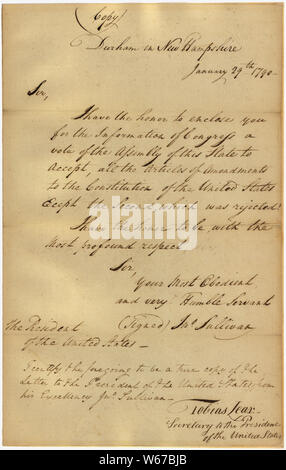 (Copy)
Durham in New Hampshire
January 29th 1790-
Sir,
I have the honor to enclose you
for the Information of Congress a
vote of the Assembly of this State to
accept, all the articles of Amendments
to the Constitution of the United States
Except the Second which was rejected.
I have the honor to be, with the
Most profound respect
Sir,
Your Most Obedient,
and very Humble Servant
(Signed) Jno. Sullivan
The President
of the United States-
I certify the foregoing to be a true copy of the
Letter to the President of the United States from
his Excellency Jno. Sullivan-
Tobias Lear.
Secretary to the President
of the United States
alamy
Image ID: W67BJB
www.alamy.com